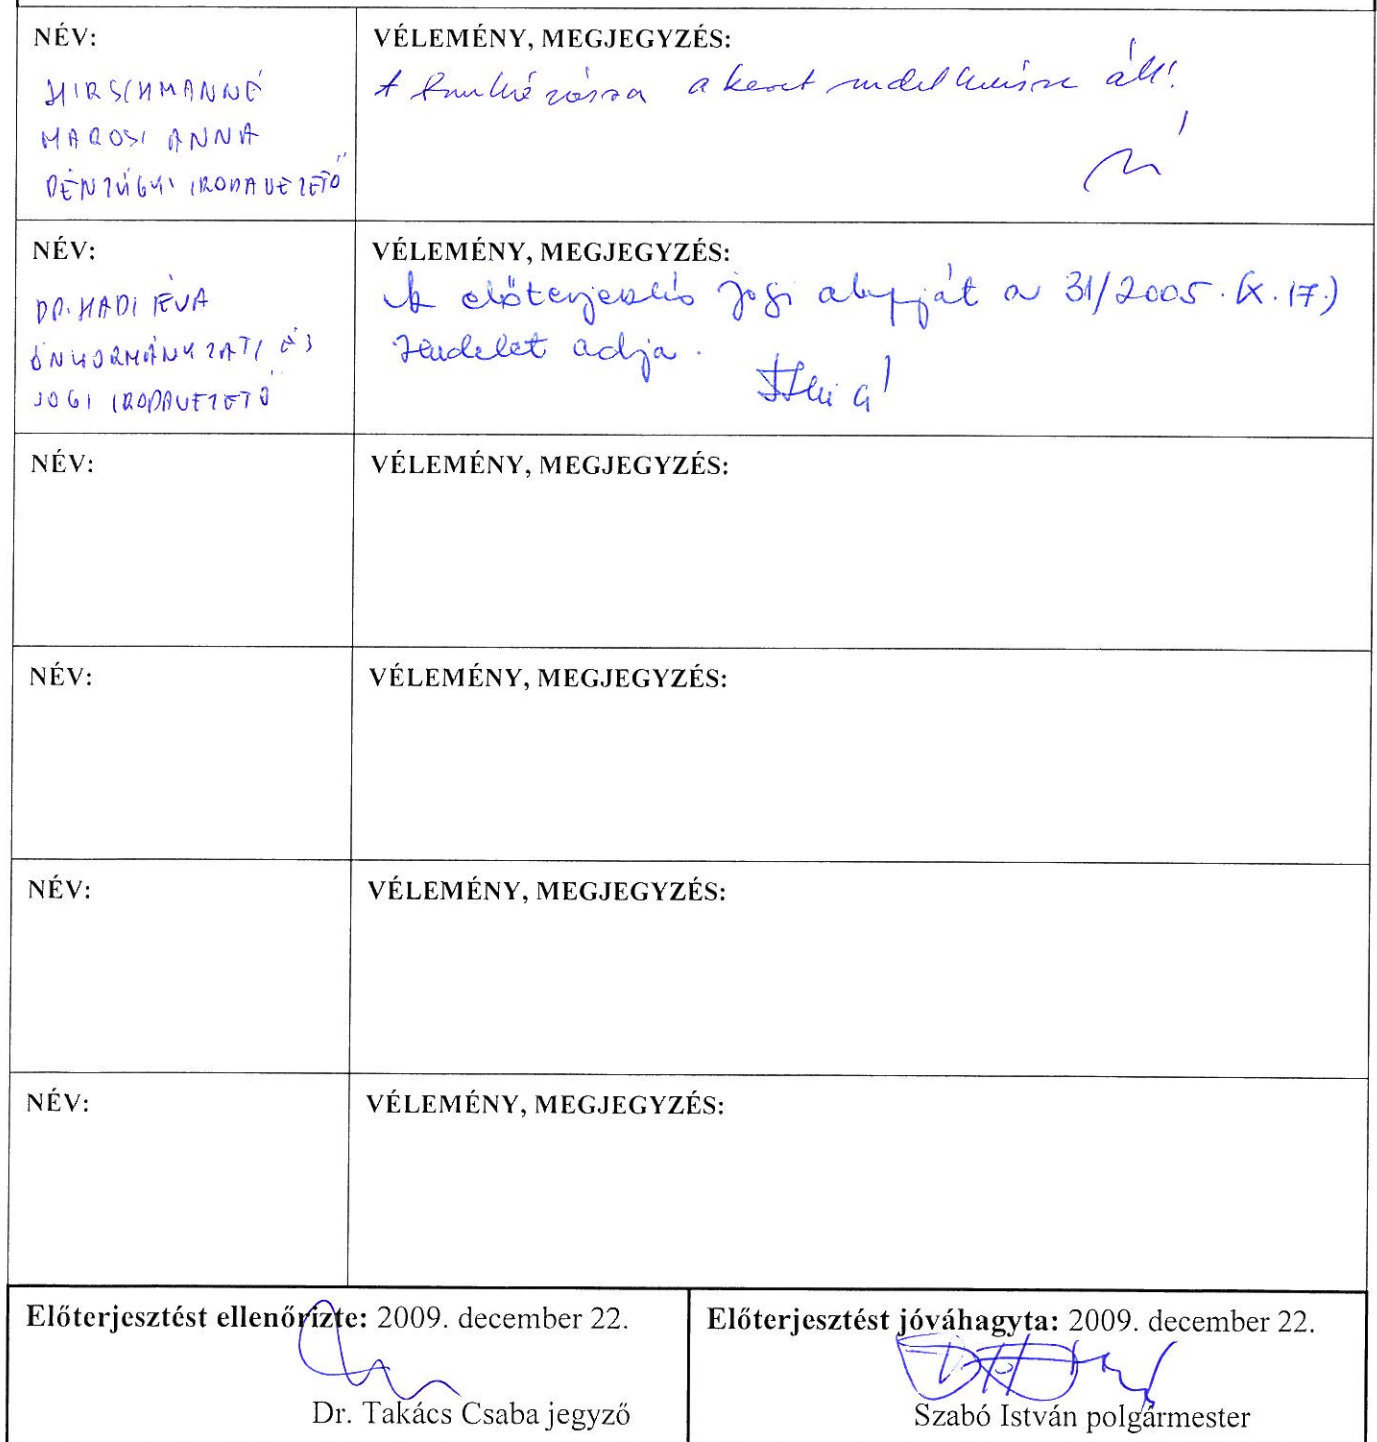 NÉV:
VÉLEMÉNY, MEGJEGYZÉS:
HIRSCHMANNÉ
MAROSI ANNA
PÉNZÜGYI IRODAVEZETŐ
A a keret rendelkezésre áll!
NÉV:
VÉLEMÉNY, MEGJEGYZÉS:
DR. HADI ÉVA
ÖNKORMÁNYZATI ÉS
JOGI IRODAVEZETŐ
Az előterjesztés jogi alapját a 31/2005. (X. 17.)
rendelet adja.
NÉV:
VÉLEMÉNY, MEGJEGYZÉS:
NÉV:
VÉLEMÉNY, MEGJEGYZÉS:
NÉV:
VÉLEMÉNY, MEGJEGYZÉS:
NÉV:
VÉLEMÉNY, MEGJEGYZÉS:
Előterjesztést ellenőrizte: 2009. december 22.
Dr. Takács Csaba jegyző
Előterjesztést jóváhagyta: 2009. december 22.
Szabó István polgármester